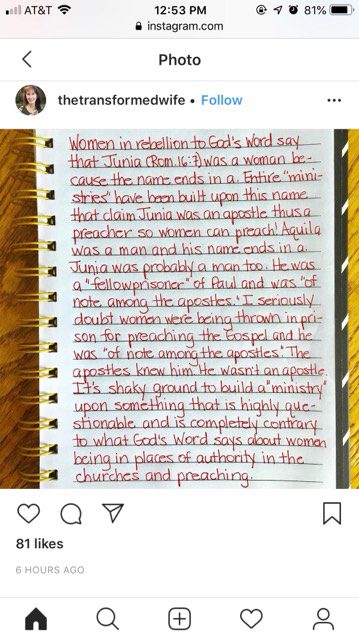 AT&T 12:53 PM 81%
instagram.com
Photo
thetransformedwife • Follow
Women in rebellion to God's Word say
that Junia (Rom. 16:7) was a woman be-
cause the name ends in a. Entire "mini-
stries" have been built upon this name
that claim Junia was an apostle thus a
preacher so women can preach! Aquila
was a man and his name ends in a.
Junia was probably a man too. He was
a "fellowprisoner" of Paul and was "of
note among the apostles." I seriously
doubt women were being thrown in pri-
son for preaching the Gospel and he
was "of note among the apostles." The
apostles knew him. He wasn't an apostle.
It's shaky ground to build a "ministry"
upon something that is highly que-
stionable and is completely contrary
to what God's Word says about women
being in places of authority in the
churches and preaching.
81 likes
6 HOURS AGO